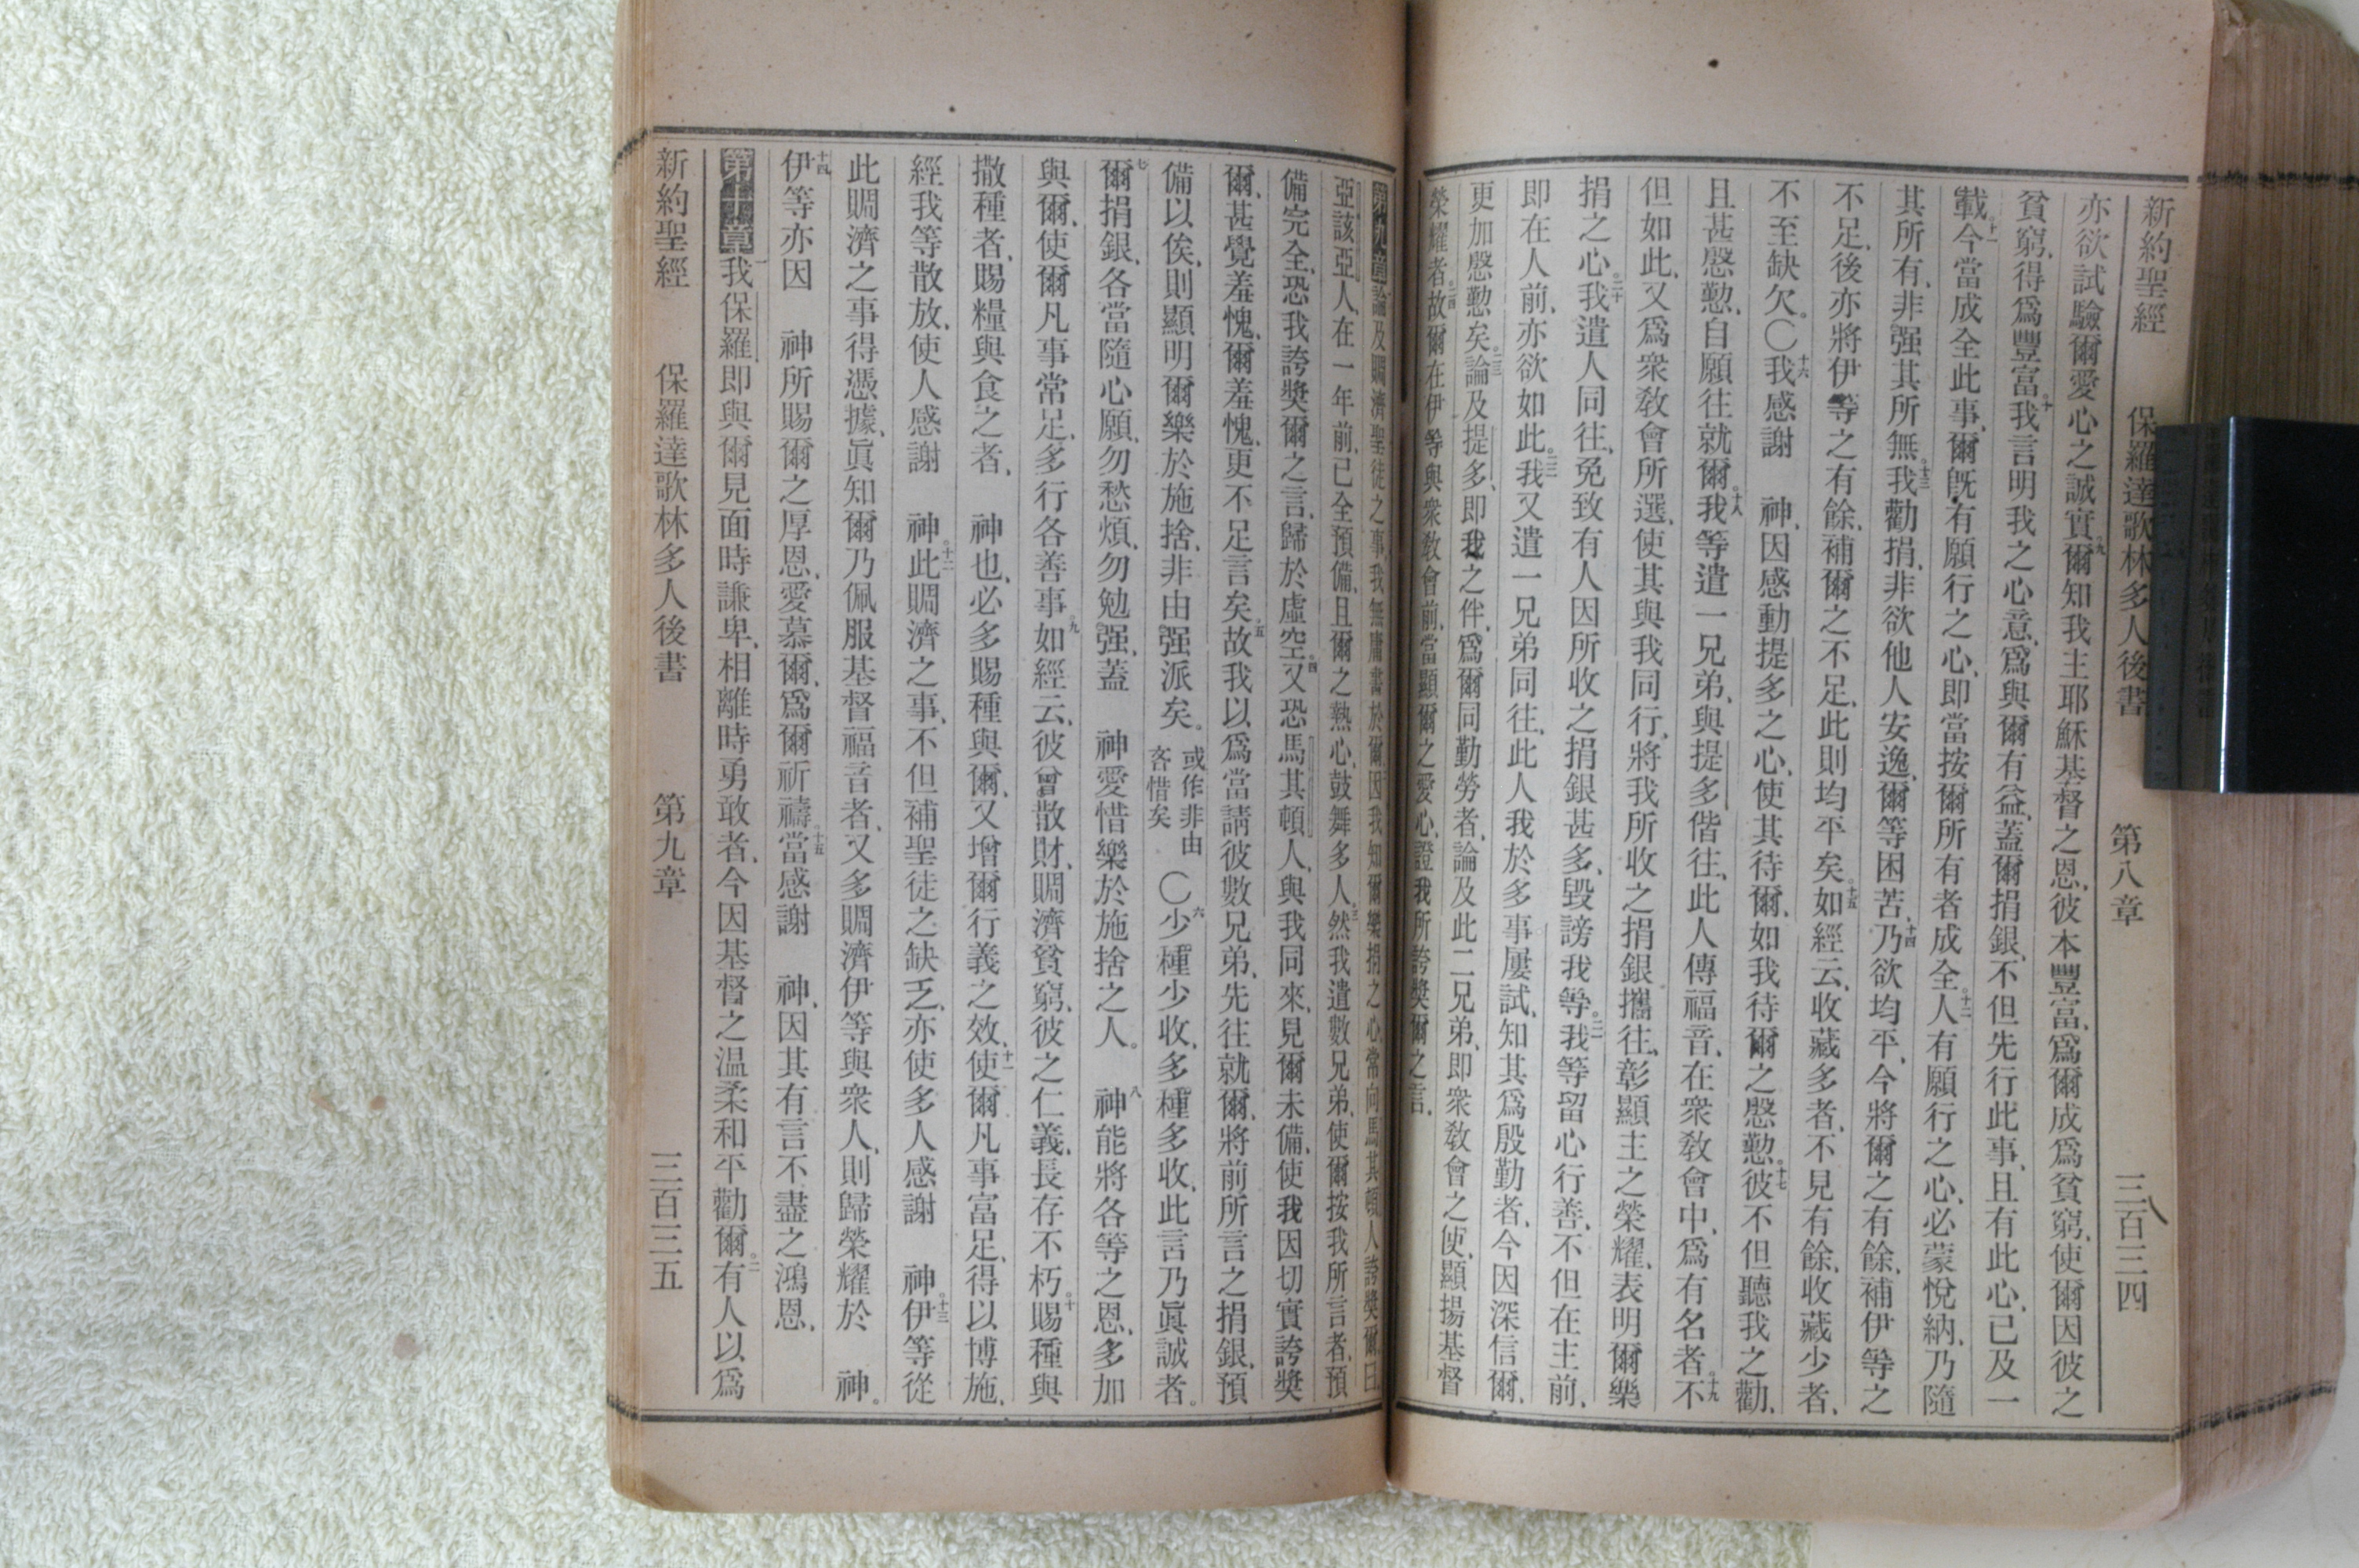 新約聖經 保羅達歌林多人後書 第八章 三百三四
亦欲試驗爾愛心之誠實、九爾知我主耶穌基督之恩、彼本豐富、爲爾成爲貧窮、使爾因彼之
貧窮、得爲豐富、十我言明我之心意、爲與爾有益、蓋爾捐銀、不但先行此事、且有此心、已及一
載、十一今當成全此事、爾旣有願行之心、卽當按爾所有者成全、十二人有願行之心、必蒙悅納、乃隨
其所有、非强其所無、十三我勸捐、非欲他人安逸、爾等困苦、十四乃欲均平、今將爾之有餘、補伊等之
不足、後亦將伊等之有餘、補爾之不足、此則均平矣、十五如經云、收藏多者、不見有餘、收藏少者、
不至缺欠。〇十六我感謝 神、因感動提多之心、使其待爾、如我待爾之慇懃、十七彼不但聽我之勸、
且甚慇懃、自願往就爾。十八我等遣一兄弟、與提多偕往、此人傳福音、在衆敎會中、爲有名者、十九不
但如此、又爲衆敎會所選、使其與我同行、將我所收之捐銀攜往、彰顯主之榮耀、表明爾樂
捐之心。二十我遣人同往、免致有人因所收之捐銀甚多、毀謗我等。二一我等留心行善、不但在主前、
卽在人前、亦欲如此。二二我又遣一兄弟同往、此人我於多事屢試、知其爲殷勤者、今因深信爾、
更加慇懃矣。二三論及提多、卽我之伴、爲爾同勤勞者、論及此二兄弟、卽衆敎會之使、顯揚基督
榮耀者、二四故爾在伊等與衆敎會前、當顯爾之愛心、證我所誇獎爾之言、
第九章 論及賙濟聖徒之事、我無庸書於爾、因我知爾樂捐之心、常向馬其頓人誇獎爾曰、
亞該亞人、在一年前、已全預備、且爾之熱心、鼓舞多人、三然我遣數兄弟、使爾按我所言者、預
備完全、恐我誇獎爾之言、歸於虛空、四又恐馬其頓人、與我同來、見爾未備、使我因切實誇獎
爾、甚覺羞愧、爾羞愧、更不足言矣、五故我以爲當請彼數兄弟、先往就爾、將前所言之捐銀、預
備以俟、則顯明爾樂於施捨、非由强派矣。或作非由吝惜矣 〇六少種少收、多種多收、此言乃眞誠者。
七爾捐銀、各當隨心願、勿愁煩、勿勉强、蓋 神愛惜樂於施捨之人。 八神能將各等之恩、多加
與爾、使爾凡事常足、多行各善事、九如經云、彼曾散財、賙濟貧窮、彼之仁義、長存不朽、十賜種與
撒種者、賜糧與食之者、 神也、必多賜種與爾、又增爾行義之效、十一使爾凡事富足、得以博施、
經我等散放、使人感謝 神、十二此賙濟之事、不但補聖徒之缺乏、亦使多人感謝 神、十三伊等從
此賙濟之事得憑據、眞知爾乃佩服基督福音者、又多賙濟伊等與衆人、則歸榮耀於 神。
十四伊等亦因 神所賜爾之厚恩、愛慕爾、爲爾祈禱。十五當感謝 神、因其有言不盡之鴻恩、
第十章 一我保羅卽與爾見面時謙卑、相離時勇敢者、今因基督之温柔和平勸爾、二有人以爲
新約聖經 保羅達歌林多人後書 第九章 三百三五